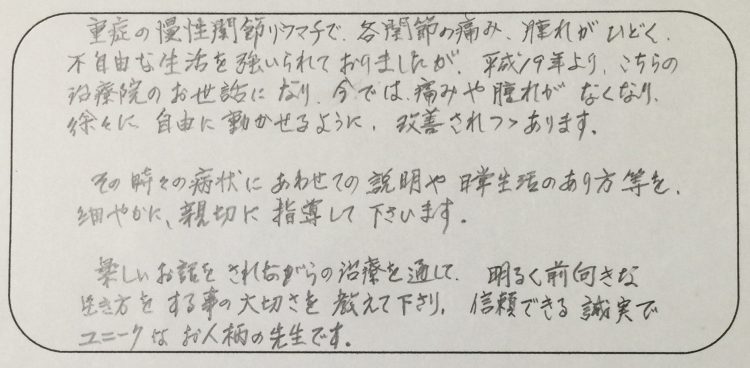 重症の慢性関節リウマチで、各関節の痛み、腫れがひどく、
不自由な生活を強いられておりましたが、平成19年より、こちらの
治療院のお世話になり、今では、痛みや腫れがなくなり、
徐々に自由に動かせるように、改善されつつあります。
その時々の病状にあわせての説明や日常生活のあり方等を、
細やかに、親切に指導して下さいます。
楽しいお話をされながらの治療を通して、明るく前向きな
生き方をする事の大切さを教えて下さり、信頼できる誠実で
ユニークなお人柄の先生です。